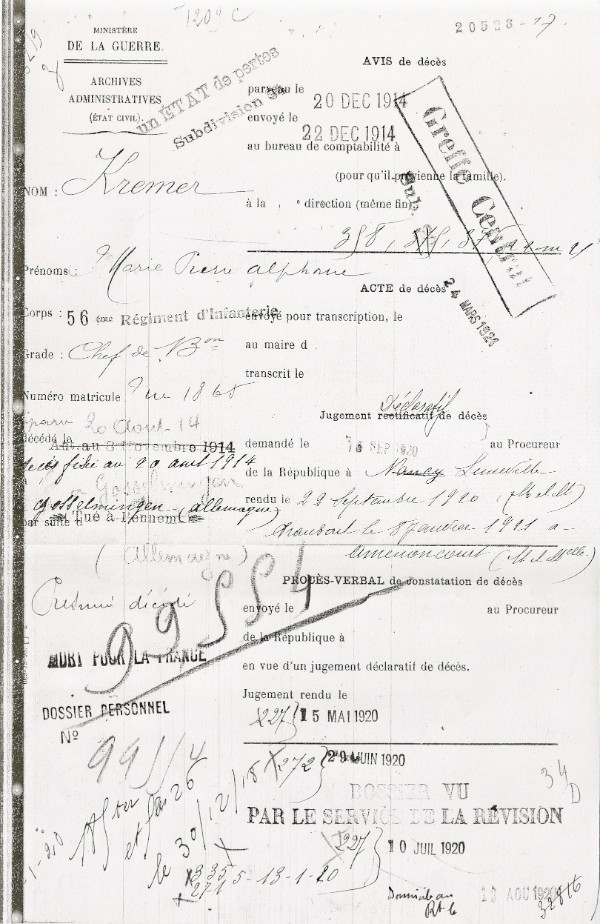 MINISTÈRE
DE LA GUERRE.
ARCHIVES
ADMINISTRATIVES
(ÉTAT CIVIL)
un ETAT de pertes
Subdivision
NOM : Kremer
Prénoms : Marie Pierre Alphonse
Corps : 56 ème Régiment d'Infanterie
Grade : Chef de Bon
Numéro matricule
20 Aout 14
décédé le
décès fixé au 20 aout 1914
Gosselmingen
Gosselmingen (allemagne)
par suite d
Tué à l'ennemi
(Allemagne)
Présumé décédé
99554
MORT POUR LA FRANCE
DOSSIER PERSONNEL
No
le 30/12/18
AVIS de décès
20528-17
parvenu le
20 DEC 1914
envoyé le
22 DEC 1914
au bureau de comptabilité à
(pour qu'il prévienne la famille).
à la direction (même fin)
Greffe Central
24 MARS 1921
ACTE de décès
envoyé pour transcription, le
au maire d
transcrit le
Déclaratif
Jugement rectificatif de décès
demandé le SEP 1920 au Procureur
de la République à Nancy Luneville
rendu le 22 Septembre 1920 (M et M)
transcrit le 8 janvier 1921 a
Amenoncourt (M et Mlle)
PROCÈS-VERBAL de constatation de décès
envoyé le au Procureur
de la République à
en vue d'un jugement déclaratif de décès.
Jugement rendu le
227 15 MAI 1920
272 29 JUIN 1920
34
D
DOSSIER VU
PAR LE SERVICE DE LA RÉVISION
227 10 JUIL 1920
335
5-13-1-20
AOU 1920